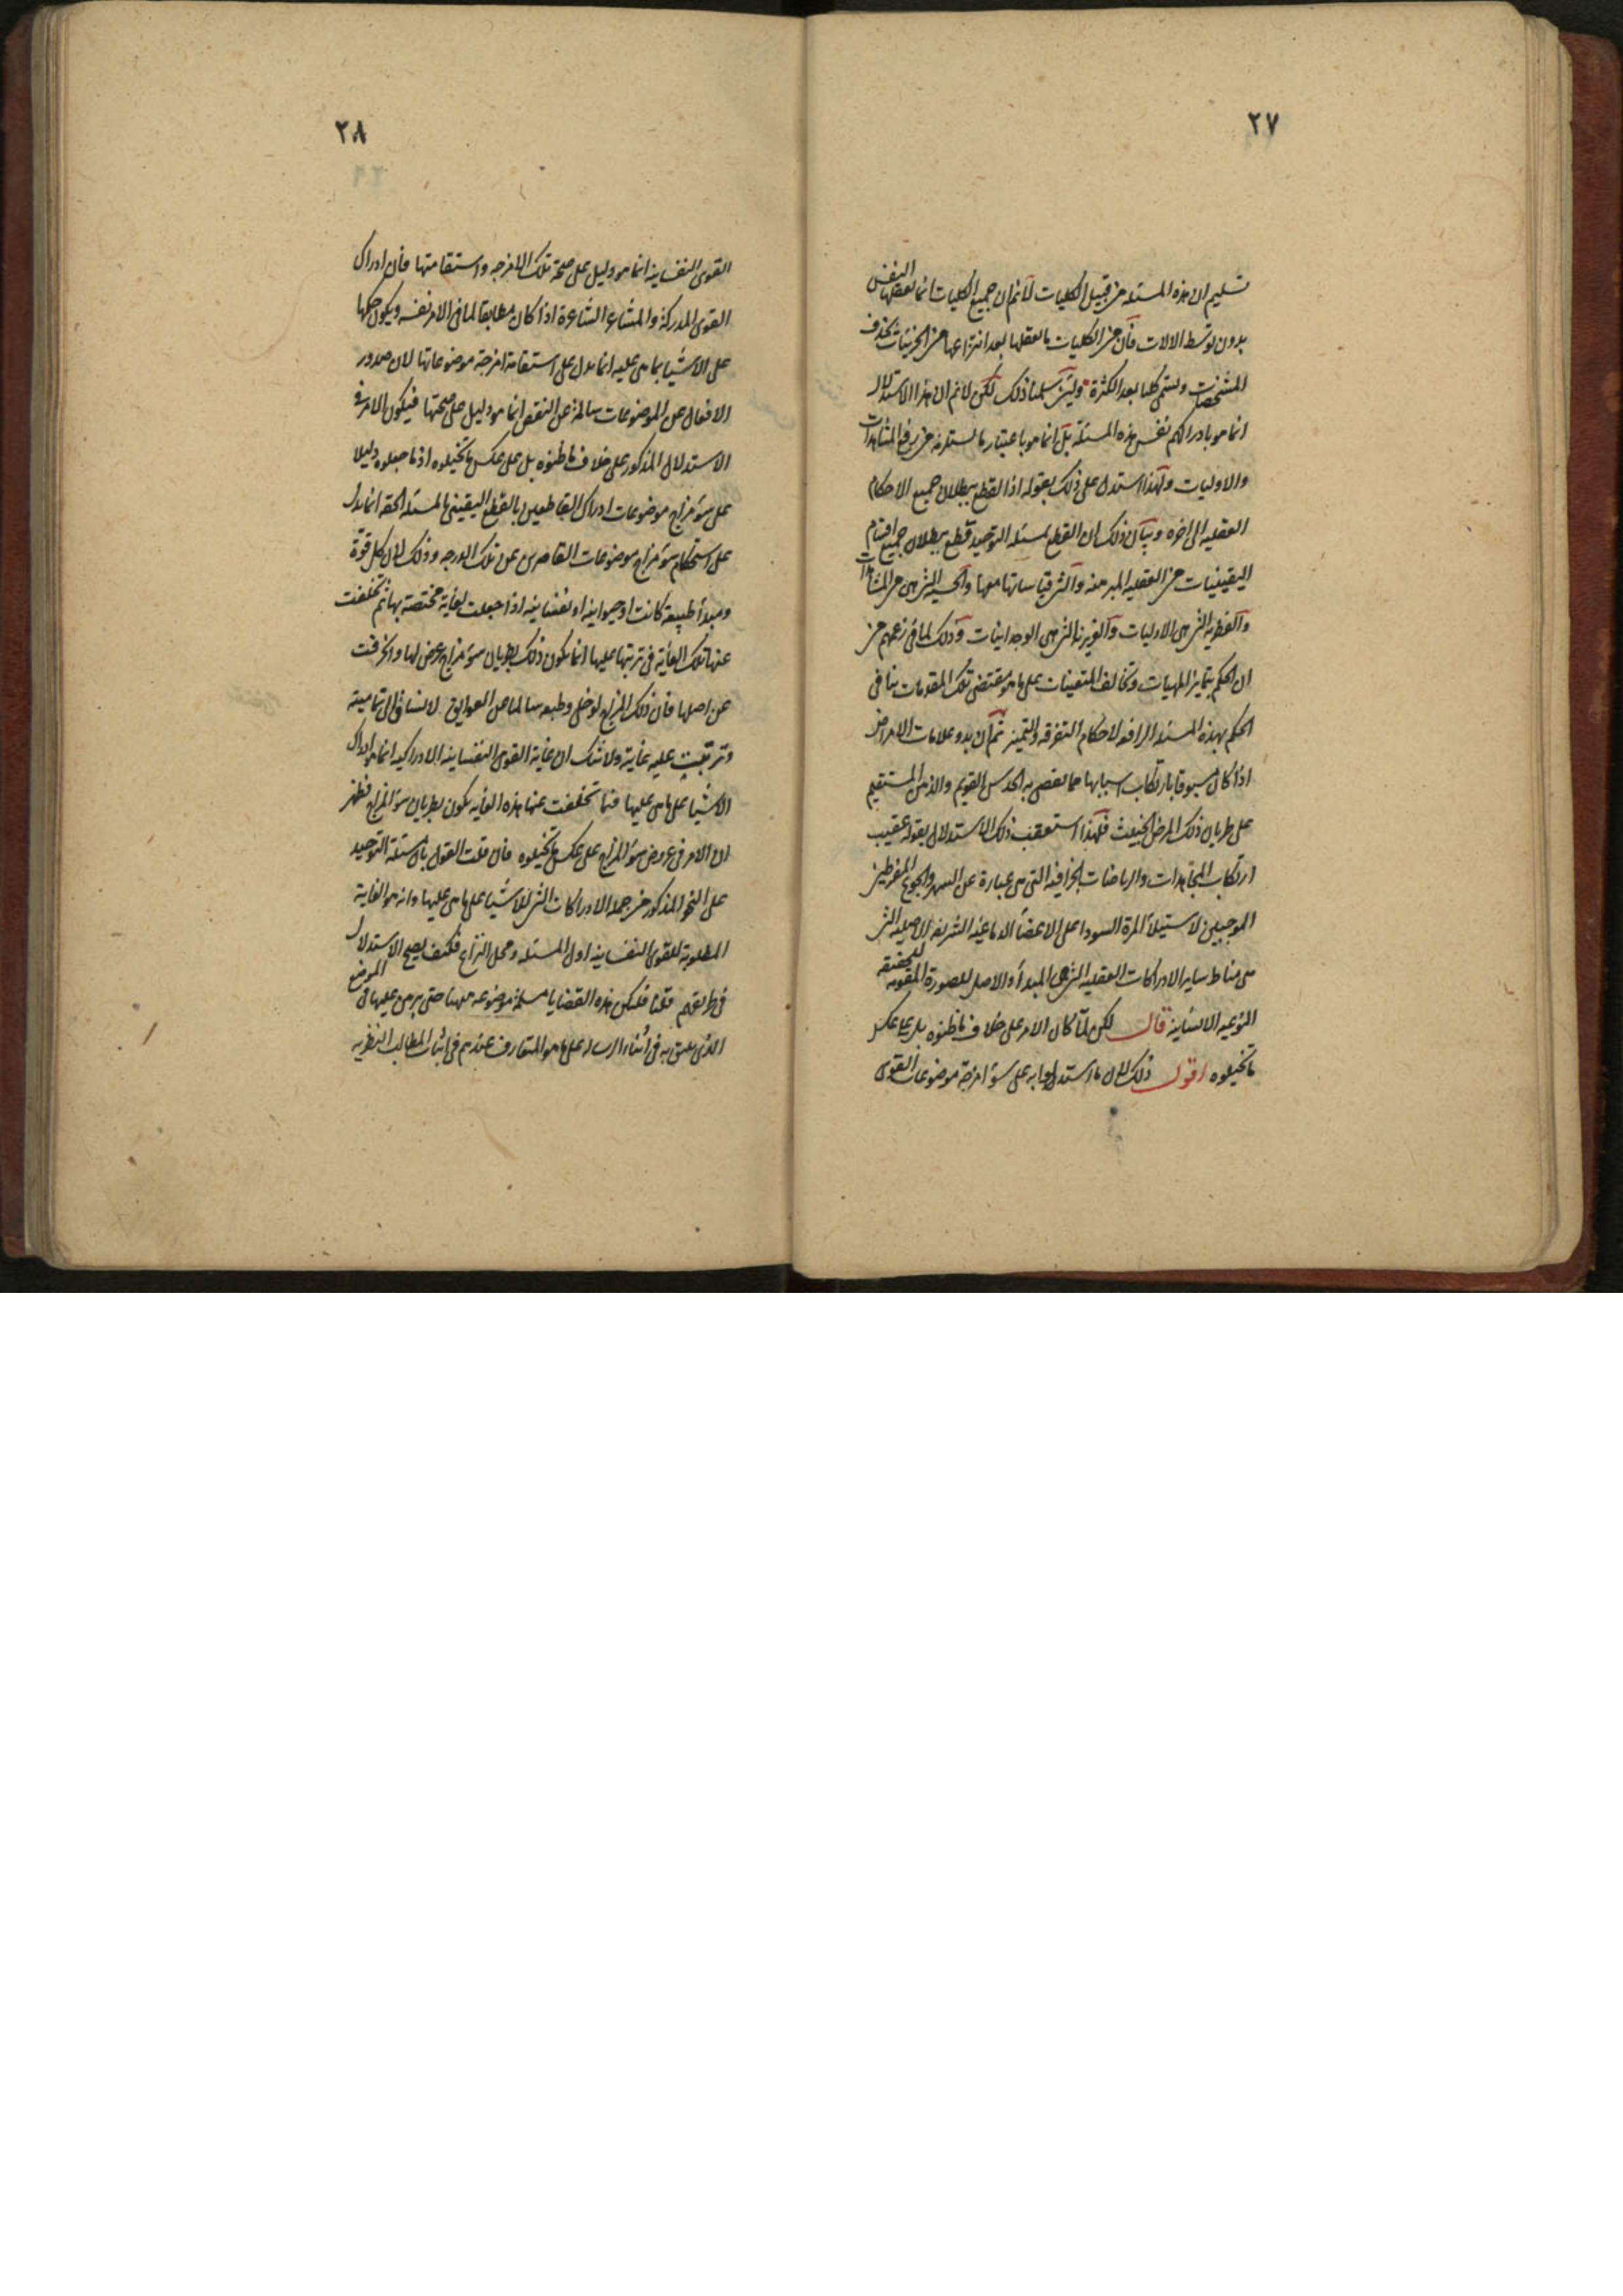 ٢٧
تسليم ان هذه المسئله من قبيل الكليات لانم ان جميع الكليات انما تعقلها النفس
بدون توسط الالات فان من الكليات ما تعقلها بعد انتزاعها من الجزئيات بحذف
المشخصات ويسمى كليا بعد الكثرة ولئن سلمنا ذلك لكن لانم ان هذا الاستدلال
انما هو بادراكهم نفس هذه المسئلة بل انما هو باعتبار ما يستلزمه من رفع المشاهدات
والاوليات ولهذا استدل على ذلك بقوله اذ القطع ببطلان جميع الاحكام
العقليه الى اخره وبيان ذلك ان القطع بمسئله التوحيد قطع ببطلان جميع اقسام
اليقينيات من العقليه المبرهنه والتى قياساتها معها والحسيه التى هى المشاهدات
والفطريه التى هى الاوليات والغريزيه التى هى الوجدانيات وذلك لما فى زعمهم من
ان الحكم بتمايز الماهيات وتخالف المتعينات على ما هو مقتضى تلك المقدمات ينافى
الحكم بهذه المسئله الرافعه لاحكام التفرقه والتميز ثم ان بدو علامات الامراض
اذا كان مسبوقا بارتكاب اسبابها مما يقضى به الحدس القويم والذهن المستقيم
على طريان ذلك المرض الخبيث فلهذا استعقب ذلك الاستدلال بقوله عقيب
ارتكاب المجاهدات والرياضات الخرافيه التى هى عبارة عن السهر والجوع المفرطين
الموجبين لاستيلاء المرة السوداء على الاعضاء الدماغيه الشريفه الاصليه التى
هى مناط ساير الادراكات العقليه التى هى المبدأ والاصل للصورة المقومه للحقيقه
النوعيه الانسانيه قال لكن لما كان الامر على خلاف ما ظنوه بل على عكس
ما تخيلوه اقول ذلك لان ما استدلوا به على سوء امزجة موضوعات القوى
٢٨
القوى النفسانيه انما هو دليل على صحة تلك الامزجه واستقامتها فان ادراك
القوى المدركة والمشاعر الشاعرة اذا كان مطابقا لما فى الامر نفسه ويكون حكمها
على الاشيا بما هى عليه انما يدل على استقامة امزجة موضوعاتها لان صدور
الافعال عن الموضوعات سالمة عن النقص انما هو دليل على صحتها فيكون الامر فى
الاستدلال المذكور على خلاف ما ظنوه بل على عكس ما تخيلوه اذ ما جعلوه دليلا
على سوء مزاج موضوعات ادراك القاطعين بالقطع اليقينى بالمسئله الحقه انما يدل
على استحكام سوء مزاج موضوعات القاصرين عن تلك الدرجه وذلك لان كل قوة
ومبدأ طبيعة كانت او حيوانيه او نفسانيه اذا جعلت لغاية مختصة بها ثم تخلفت
عنها تلك الغاية فى ترتبها عليها انما يكون ذلك بطريان سوء مزاج عرض لها وانحرفت
عن اصلها فان ذلك المزاج لو خلى وطبعه سالما عن العوايق لانساق الى تماميته
وترتبت عليه غايته ولا شك ان غاية القوى النفسانيه الادراكيه انما هو ادراك
الاشيا على ما هى عليها فما تخلفت عنها هذه الغايه يكون بطريان سوء المزاج فظهر
ان الامر فى عروض سوء المزاج على عكس ما تخيلوه فان قلت القول بان مسئلة التوحيد
على النحو المذكور من جمله الادراكات التى للاشيا على ما هى عليها وانه هو الغاية
المطلوبة للقوى النفسانيه اول المسئله ومحل النزاع فكيف يصح الاستدلال
فى طريقهم قلنا فليكن هذه القضايا مسلمة موضوعه ههنا حتى يبرهن عليها فى الموضع
الذى يليق به فى اثناء الرساله على ما هو المتعارف عندهم فى اثبات المطالب النظريه